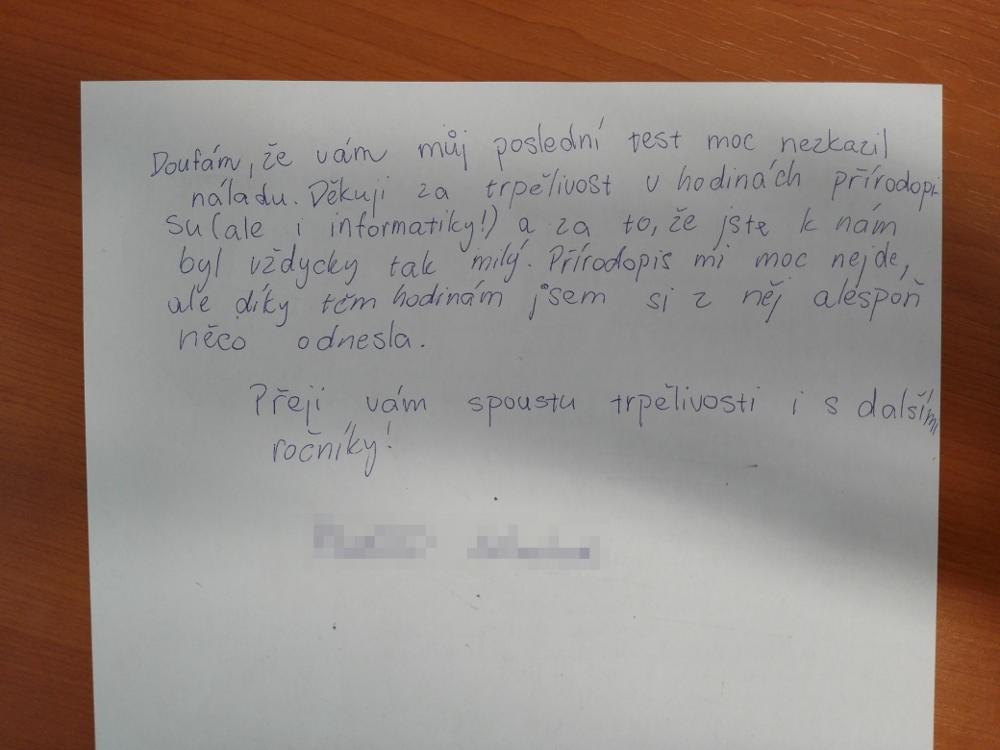 Doufám, že vám můj poslední test moc nezkazil
náladu. Děkuji za trpělivost v hodinách přírodopi
su(ale i informatiky!) a za to, že jste k nám
byl vždycky tak milý. Přírodopis mi moc nejde,
ale díky těm hodinám jsem si z něj alespoň
něco odnesla.
Přeji vám spoustu trpělivosti i s dalšími
ročníky!